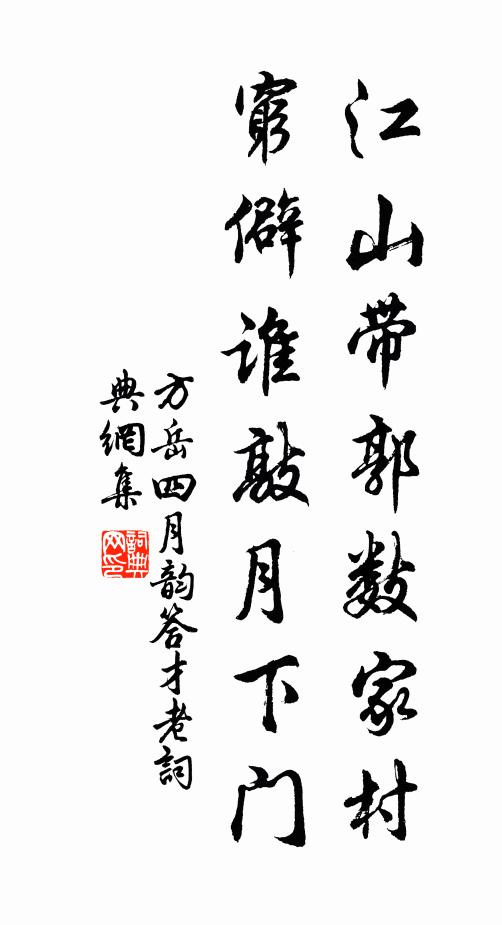 江山带郭数家村
窮僻谁敲月下门
方岳四月韵答才老詞
典網集
詞典网印